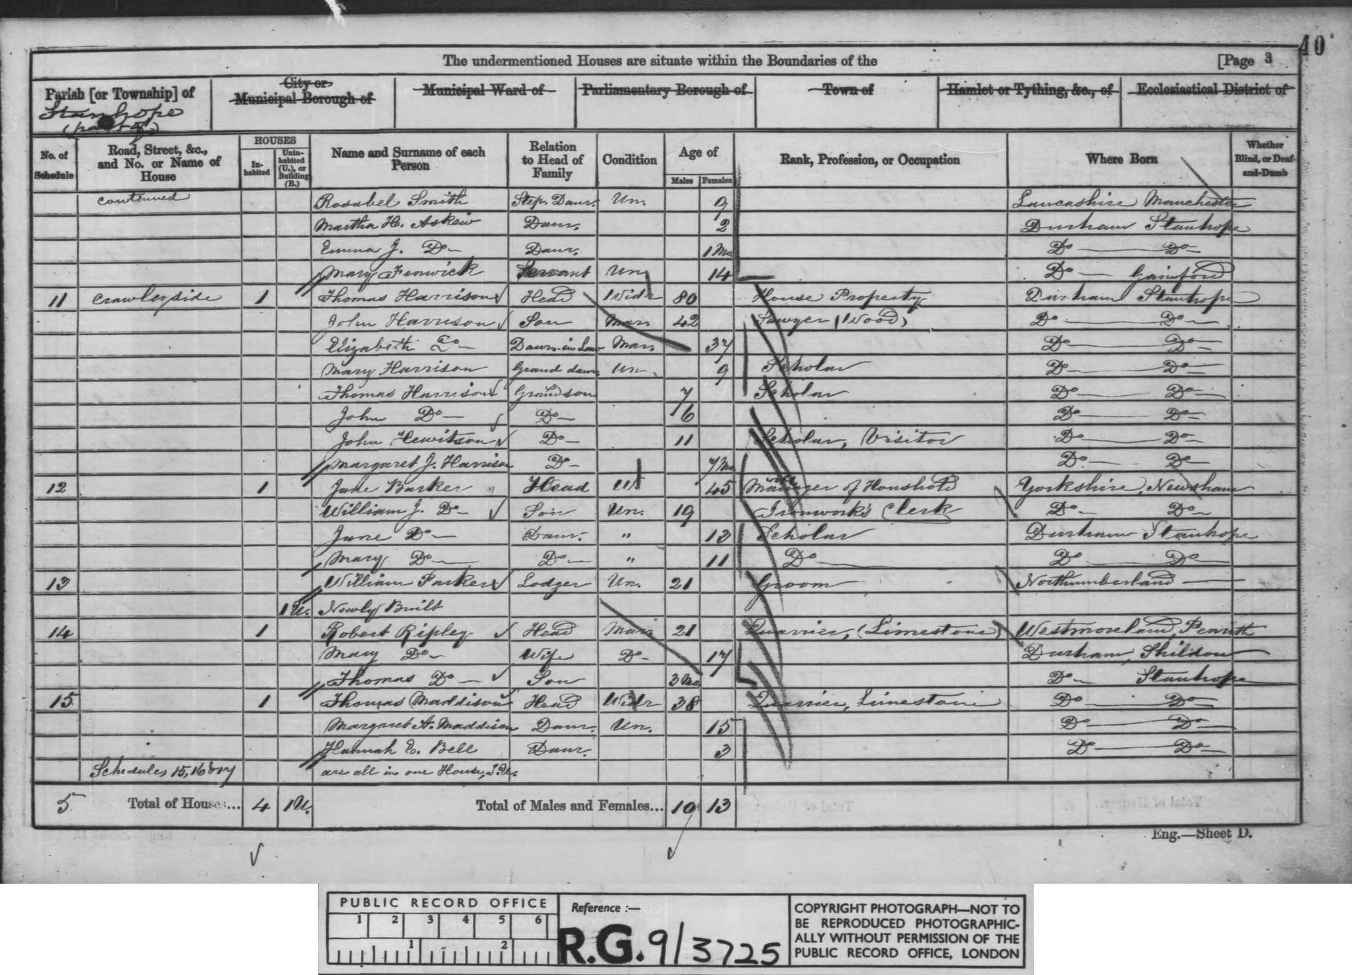 40
The undermentioned Houses are situate within the Boundaries of the [Page 3
Parish [or Township] of City or Municipal Borough of Municipal Ward of Parliamentary Borough of Town of Hamlet or Tything, &c., of Ecclesiastical District of
Stanhope
No. of Schedule Road, Street, &c., and No. or Name of House HOUSES In-habited Unin-habited (U.), or Building (B.) Name and Surname of each Person Relation to Head of Family Condition Age of Males Females Rank, Profession, or Occupation Where Born Whether Blind, or Deaf-and-Dumb
continued Rosabel Smith Step Daur. Un. 9 Lancashire Manchester
Martha H. Askew Daur. 2 Durham Stanhope
Emma J. Do Daur. 1 Mo Do Do
Mary Fenwick Servant Un 14 Do Gainford
11 Crawleyside 1 Thomas Harrison Head Widr 80 House Property Durham Stanhope
John Harrison Son Mar 42 Sawyer (Wood) Do Do
Elizabeth Do Daur-in-law Mar 37 Do Do
Mary Harrison Grand daur Un. 9 Scholar Do Do
Thomas Harrison Grandson 7 Scholar Do Do
John Do Do 6 Do Do
John Hewitson Do 11 Scholar, Visitor Do Do
Margaret J. Harrison Do 7 Mo Do Do
12 1 Jane Barker Head 45 Manager of Houshold Yorkshire, Newsham
William J. Do Son Un. 19 Ironwork's Clerk Do Do
Jane Do Daur. " 13 Scholar Durham Stanhope
Mary Do Do " 11 Do Do Do
13 William Parker Lodger Un. 21 Groom Northumberland
1 U. Newly Built
14 1 Robert Ripley Head Mar 21 Quarrier, (Limestone) Westmoreland, Penrith
Mary Do Wife Do 17 Durham, Shildon
Thomas Do Son 3 Mo Do Stanhope
15 1 Thomas Maddison Head Widr 38 Quarrier, Limestone Do Do
Margaret A. Maddison Daur. Un. 15 Do Do
Hannah E. Bell Daur. 3 Do Do
Schedules 15, 16 & 17 are all in one House,
5 Total of Houses... 4 1 U. Total of Males and Females... 10 13
Eng.—Sheet D.
PUBLIC RECORD OFFICE
1 2 3 4 5 6
1 2
Reference :—
R.G. 9/3725
COPYRIGHT PHOTOGRAPH—NOT TO
BE REPRODUCED PHOTOGRAPHIC-
ALLY WITHOUT PERMISSION OF THE
PUBLIC RECORD OFFICE, LONDON